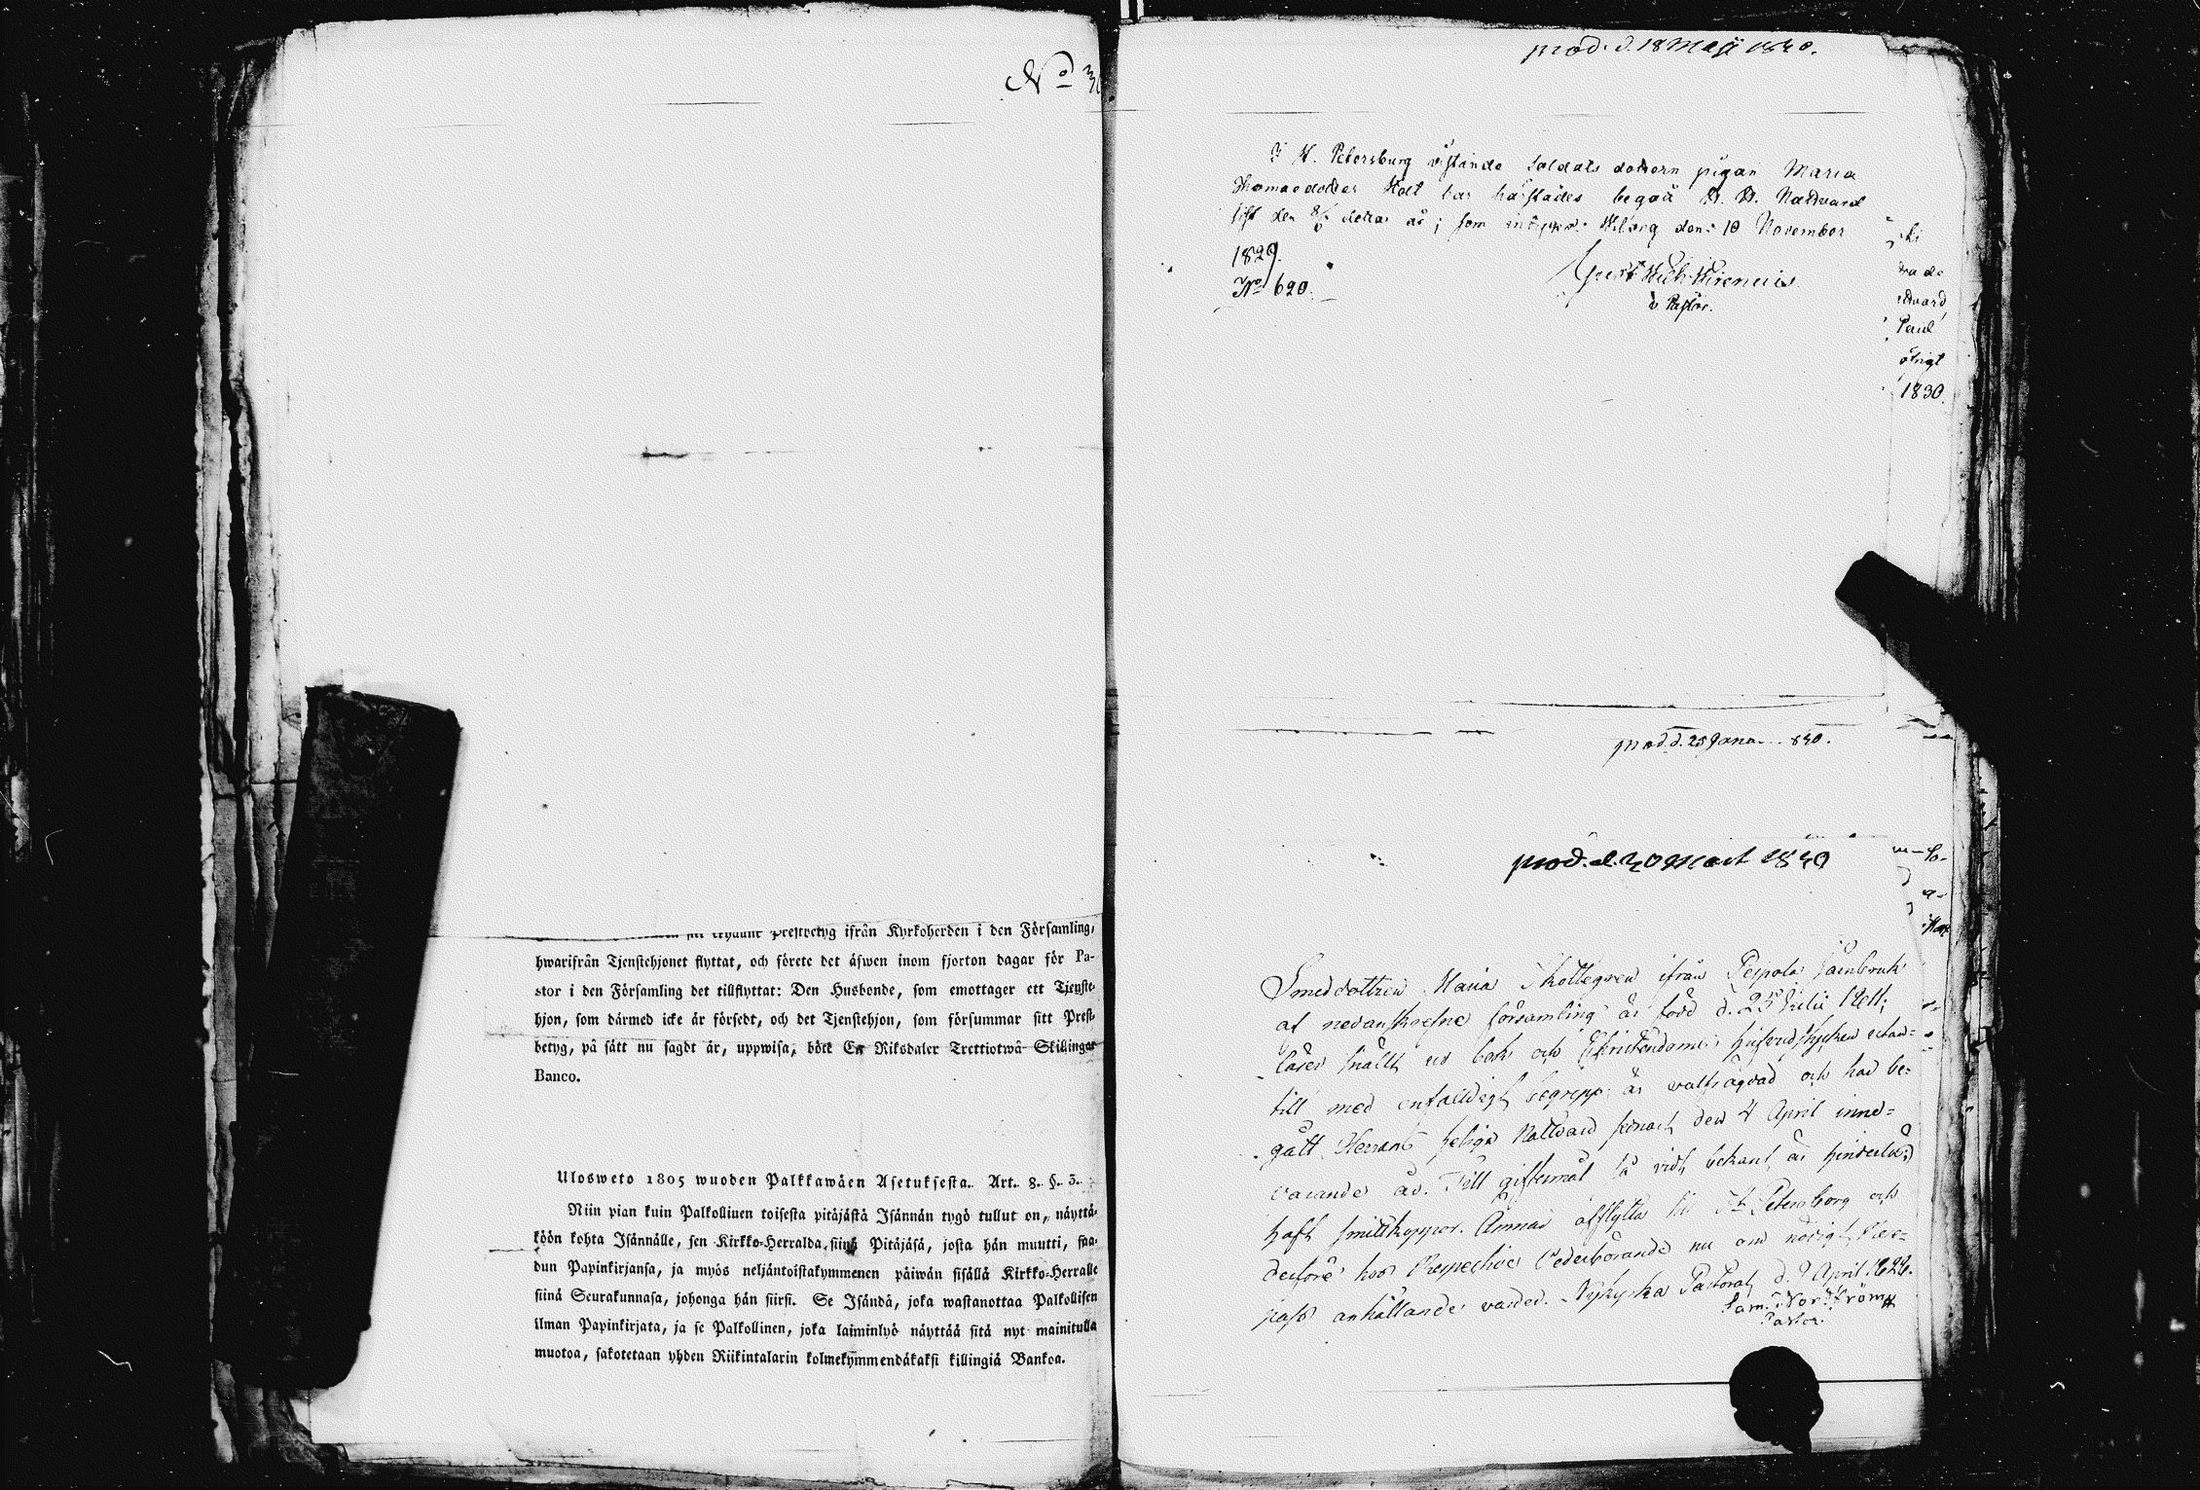 No 3
prestbetyg ifrån Kyrkoherden i den Församling,
hwarifrån Tjenstehjonet flyttat, och förete det äfwen inom fjorton dagar för Pa-
stor i den Församling det tillflyttat: Den Husbonde, som emottager ett Tjenste-
hjon, som därmed icke är försedt, och det Tjenstehjon, som försummar sitt Prest-
betyg, på sätt nu sagdt är, uppwisa, böte En Riksdaler Trettiotwå Skillingar
Banco.
Ulosweto 1805 wuoden Palkkawäen Asetuksesta. Art. 8. §. 3.
Niin pian kuin Palkolliuen toisesta pitäjästä Isännän tygö tullut on, näyttä-
köön kohta Isännälle, sen Kirkko-Herralda, siinä Pitäjäsä, josta hän muutti, saa-
dun Papinkirjansa, ja myös neljäntoistakymmenen päiwän sisällä Kirkko-Herralle
siinä Seurakunnasa, johonga hän siirsi. Se Isändä, joka wastanottaa Palkollisen
ilman Papinkirjata, ja se Palkollinen, joka laiminlyö näyttää sitä nyt mainitulla
muotoa, sakotetaan yhden Riikintalarin kolmekymmendäkaksi killingiä Bankoa.
prod. d. 18 Maji 1830.
I St. Petersburg vistande Soldats dottern pigan Maria
Thomaedotter har härstädes begått H. H. Nattvard
sist den 8/6 detta år; som Wiborg den 10 November
1829.
No 620.
v. Pastor.
dra de
Paul
öfrigt
1830.
prod. d. 25 Janua 830.
prod. d. 20 Mart 1830
Smeddottren Maria Skottegren ifrån Peipola Järnbruk
af nedanskrefne församling är född d. 25 Julii 1811;
läser snällt ur bok och Christendoms hufvudstycken utan-
till med enfaldigt begrepp; är wälfrägdad och har be-
gått Herrans heliga Nattvard senast den 4 April inne-
varande år. Till giftermål så vidt bekant är hinderlös;
haft smittkoppor. Ämnar afflytta till St. Petersborg och
derföre hos Respective Vederbörande nu om nödigt Rese-
pass anhållande varder. Nykyrka Pastorat d. 9 April 1826.
Sam. Norström
Pastor.